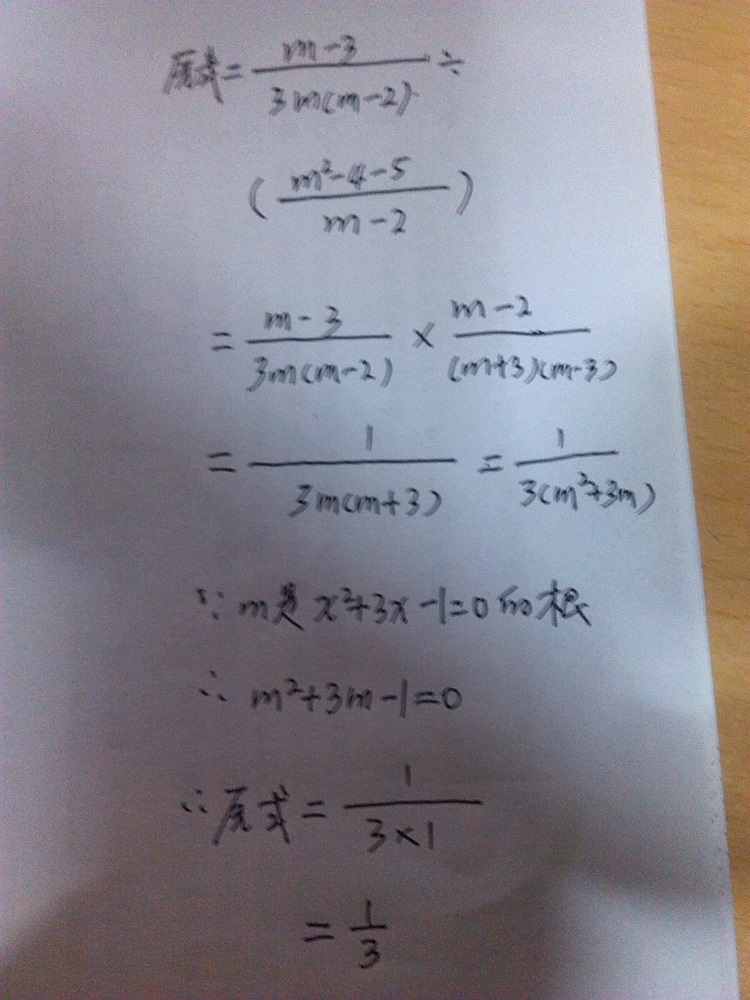 原式 = (m-3)/(3m(m-2)) ÷
((m²-4-5)/(m-2))
= (m-3)/(3m(m-2)) × (m-2)/((m+3)(m-3))
= 1/(3m(m+3)) = 1/(3(m²+3m))
∵ m是 x²+3x-1=0的根
∴ m²+3m-1=0
∴原式 = 1/(3×1)
= 1/3